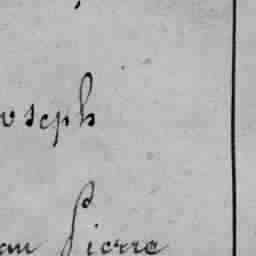 oseph
an Pierre